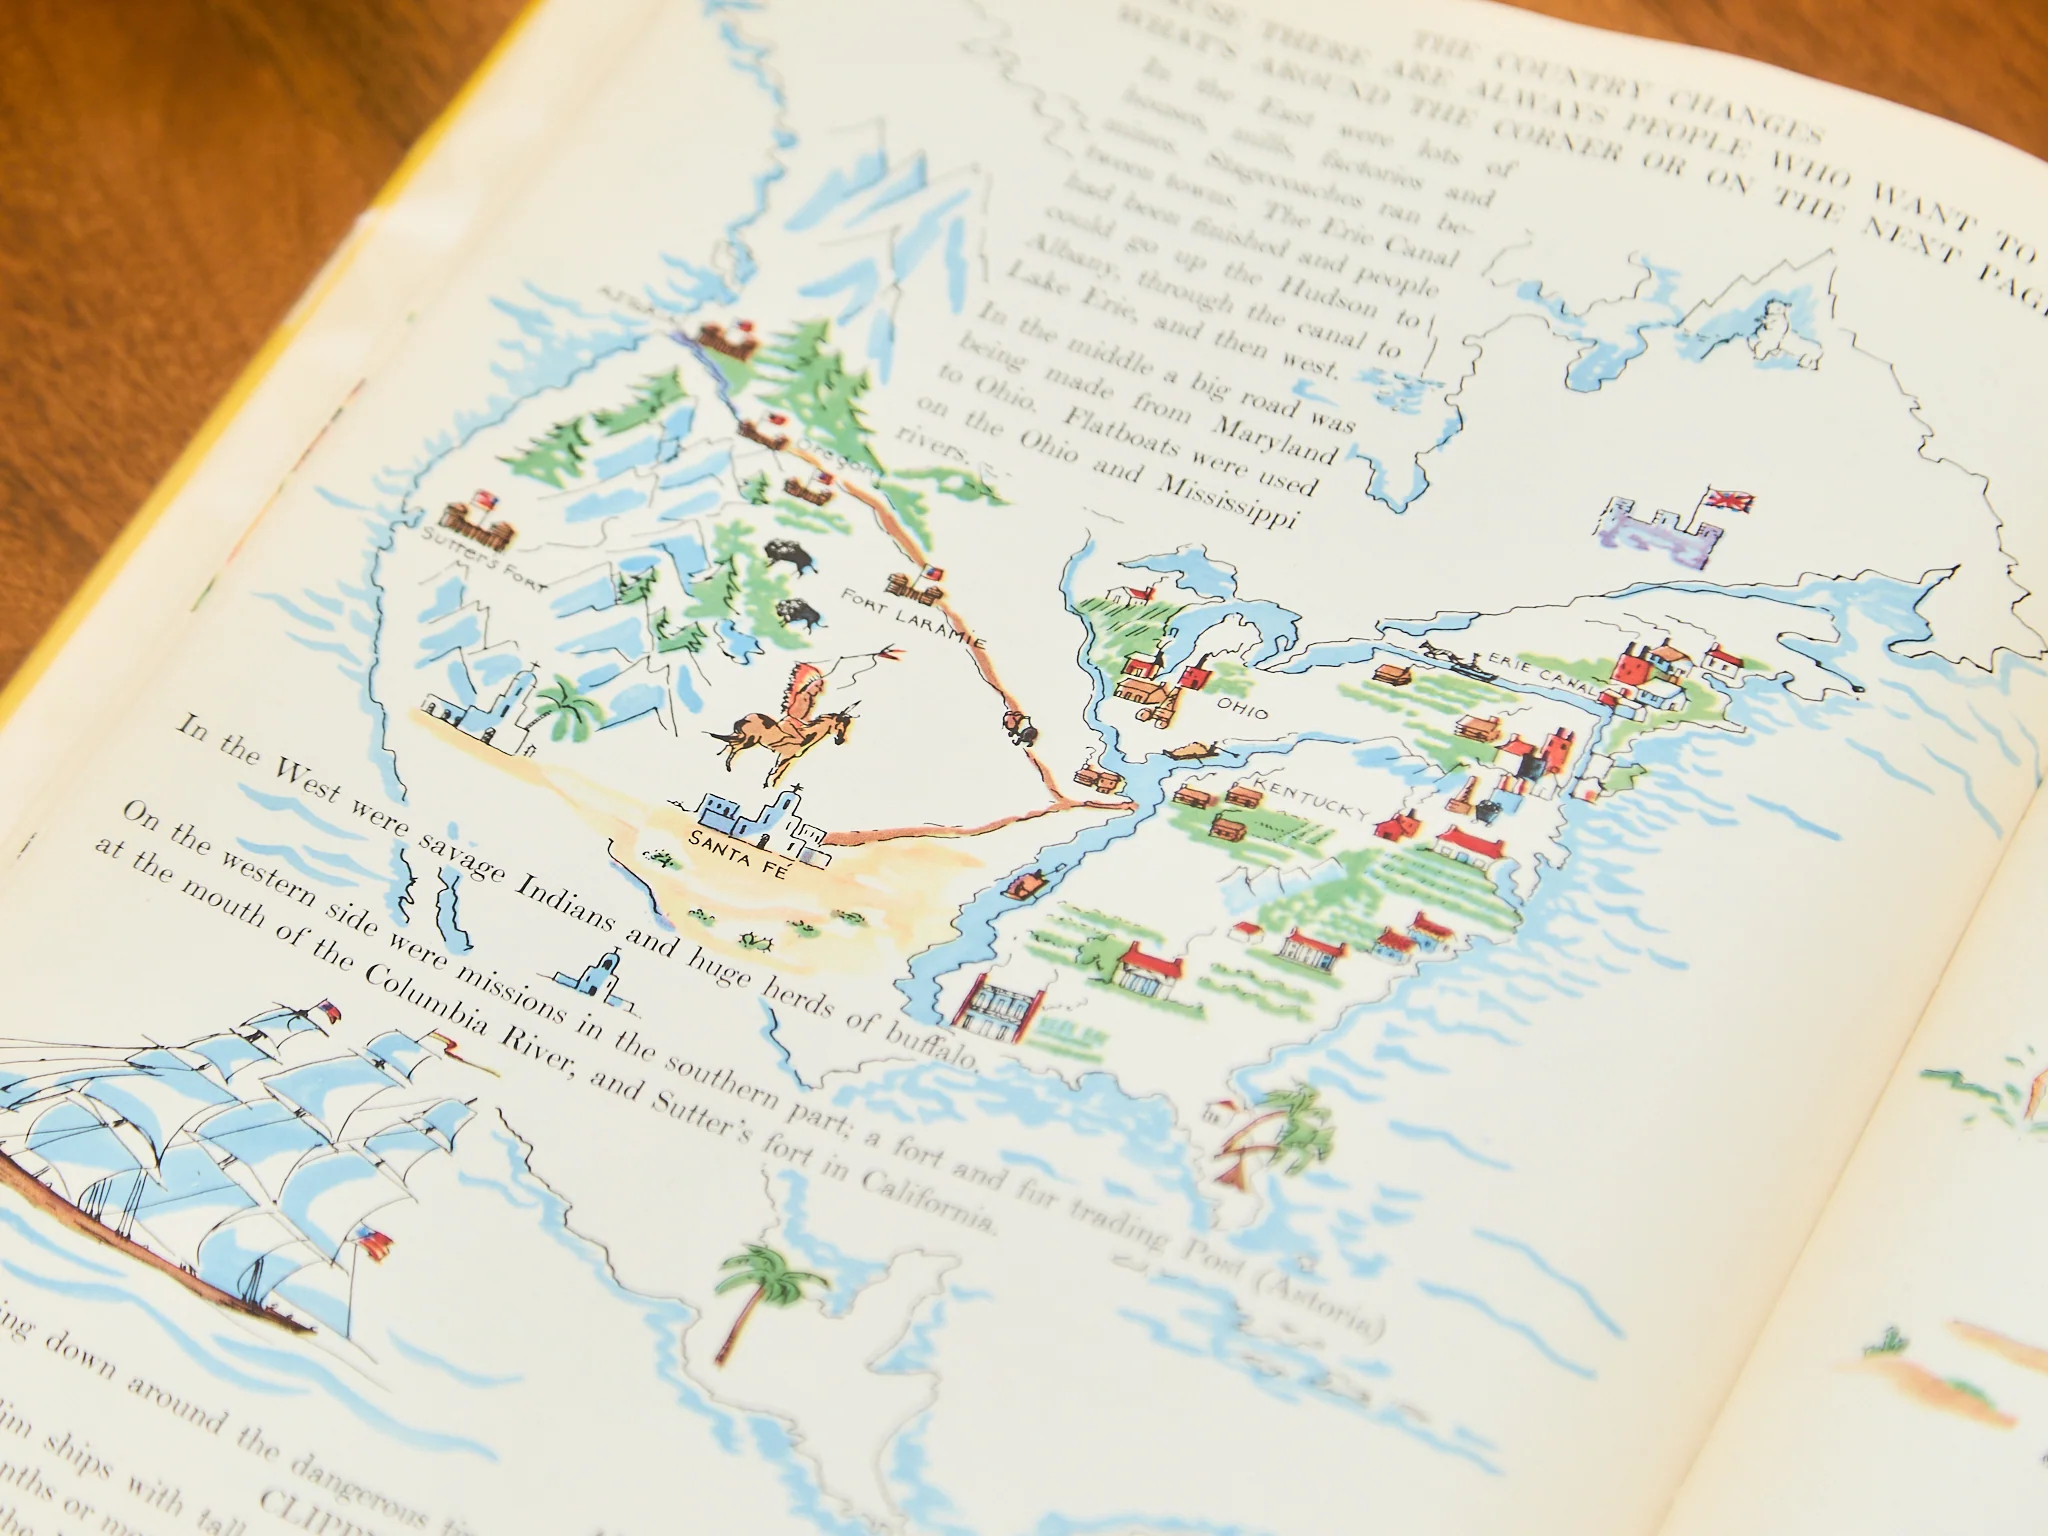 THE COUNTRY CHANGES
THERE ARE ALWAYS PEOPLE WHO WANT TO
WHAT'S AROUND THE CORNER OR ON THE NEXT PAGE
In the East were lots of
houses, mills, factories and
mines. Stagecoaches ran be-
tween towns. The Erie Canal
had been finished and people
could go up the Hudson to
Albany, through the canal to
Lake Erie, and then west.
In the middle a big road was
being made from Maryland
to Ohio. Flatboats were used
on the Ohio and Mississippi
rivers.
Oregon
SUTTER'S FORT
FORT LARAMIE
ERIE CANAL
OHIO
KENTUCKY
SANTA FÉ
In the West were savage Indians and huge herds of buffalo.
On the western side were missions in the southern part; a fort and fur trading Post (Astoria)
at the mouth of the Columbia River, and Sutter's fort in California.
down around the dangerous
ships with tall
or